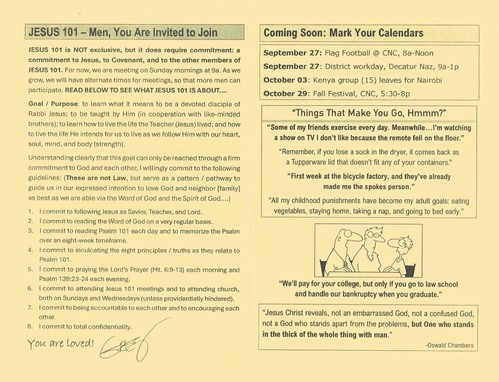 JESUS 101 – Men, You Are Invited to Join
JESUS 101 is NOT exclusive, but it does require commitment: a
commitment to Jesus, to Covenant, and to the other members of
JESUS 101. For now, we are meeting on Sunday mornings at 9a. As we
grow, we will have alternate times for meetings, so that more men can
participate. READ BELOW TO SEE WHAT JESUS 101 IS ABOUT....
Goal / Purpose: to learn what it means to be a devoted disciple of
Rabbi Jesus; to be taught by Him (in cooperation with like-minded
brothers); to learn how to live the life the Teacher (Jesus) lived; and how
to live the life He intends for us to live as we follow Him with our heart,
soul, mind, and body (strength).
Understanding clearly that this goal can only be reached through a firm
commitment to God and each other, I willingly commit to the following
guidelines: (These are not Law, but serve as a pattern / pathway to
guide us in our expressed intention to love God and neighbor [family]
as best as we are able via the Word of God and the Spirit of God....)
1. I commit to following Jesus as Savior, Teacher, and Lord.
2. I commit to reading the Word of God on a very regular basis.
3. I commit to reading Psalm 101 each day and to memorize the Psalm
over an eight-week timeframe.
4. I commit to inculcating the eight principles / truths as they relate to
Psalm 101.
5. I commit to praying the Lord's Prayer (Mt. 6:9-13) each morning and
Psalm 139:23-24 each evening.
6. I commit to attending JESUS 101 meetings and to attending church,
both on Sundays and Wednesdays (unless providentially hindered).
7. I commit to being accountable to each other and to encouraging each
other.
8. I commit to total confidentiality.
You are loved!
Coming Soon: Mark Your Calendars
September 27: Flag Football @ CNC, 8a-Noon
September 27: District workday, Decatur Naz, 9a-1p
October 03: Kenya group (15) leaves for Nairobi
October 29: Fall Festival, CNC, 5:30-8p
"Things That Make You Go, Hmmm?"
"Some of my friends exercise every day. Meanwhile...I'm watching
a show on TV I don't like because the remote fell on the floor."
"Remember, if you lose a sock in the dryer, it comes back as
a Tupperware lid that doesn't fit any of your containers."
"First week at the bicycle factory, and they've already
made me the spokes person."
"All my childhood punishments have become my adult goals: eating
vegetables, staying home, taking a nap, and going to bed early."
"We'll pay for your college, but only if you go to law school
and handle our bankruptcy when you graduate."
"Jesus Christ reveals, not an embarrassed God, not a confused God,
not a God who stands apart from the problems, but One who stands
in the thick of the whole thing with man."
-Oswald Chambers